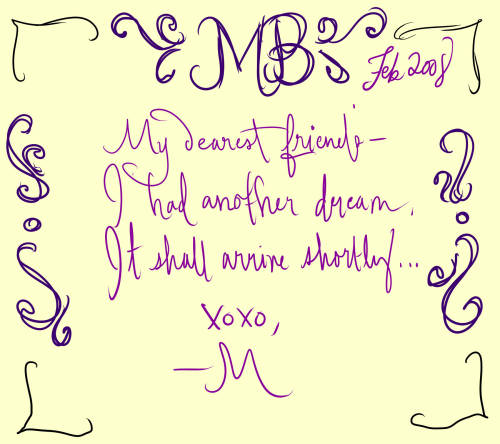 MB
Feb 2008
My dearest friends—
I had another dream.
It shall arrive shortly...
xoxo,
—M